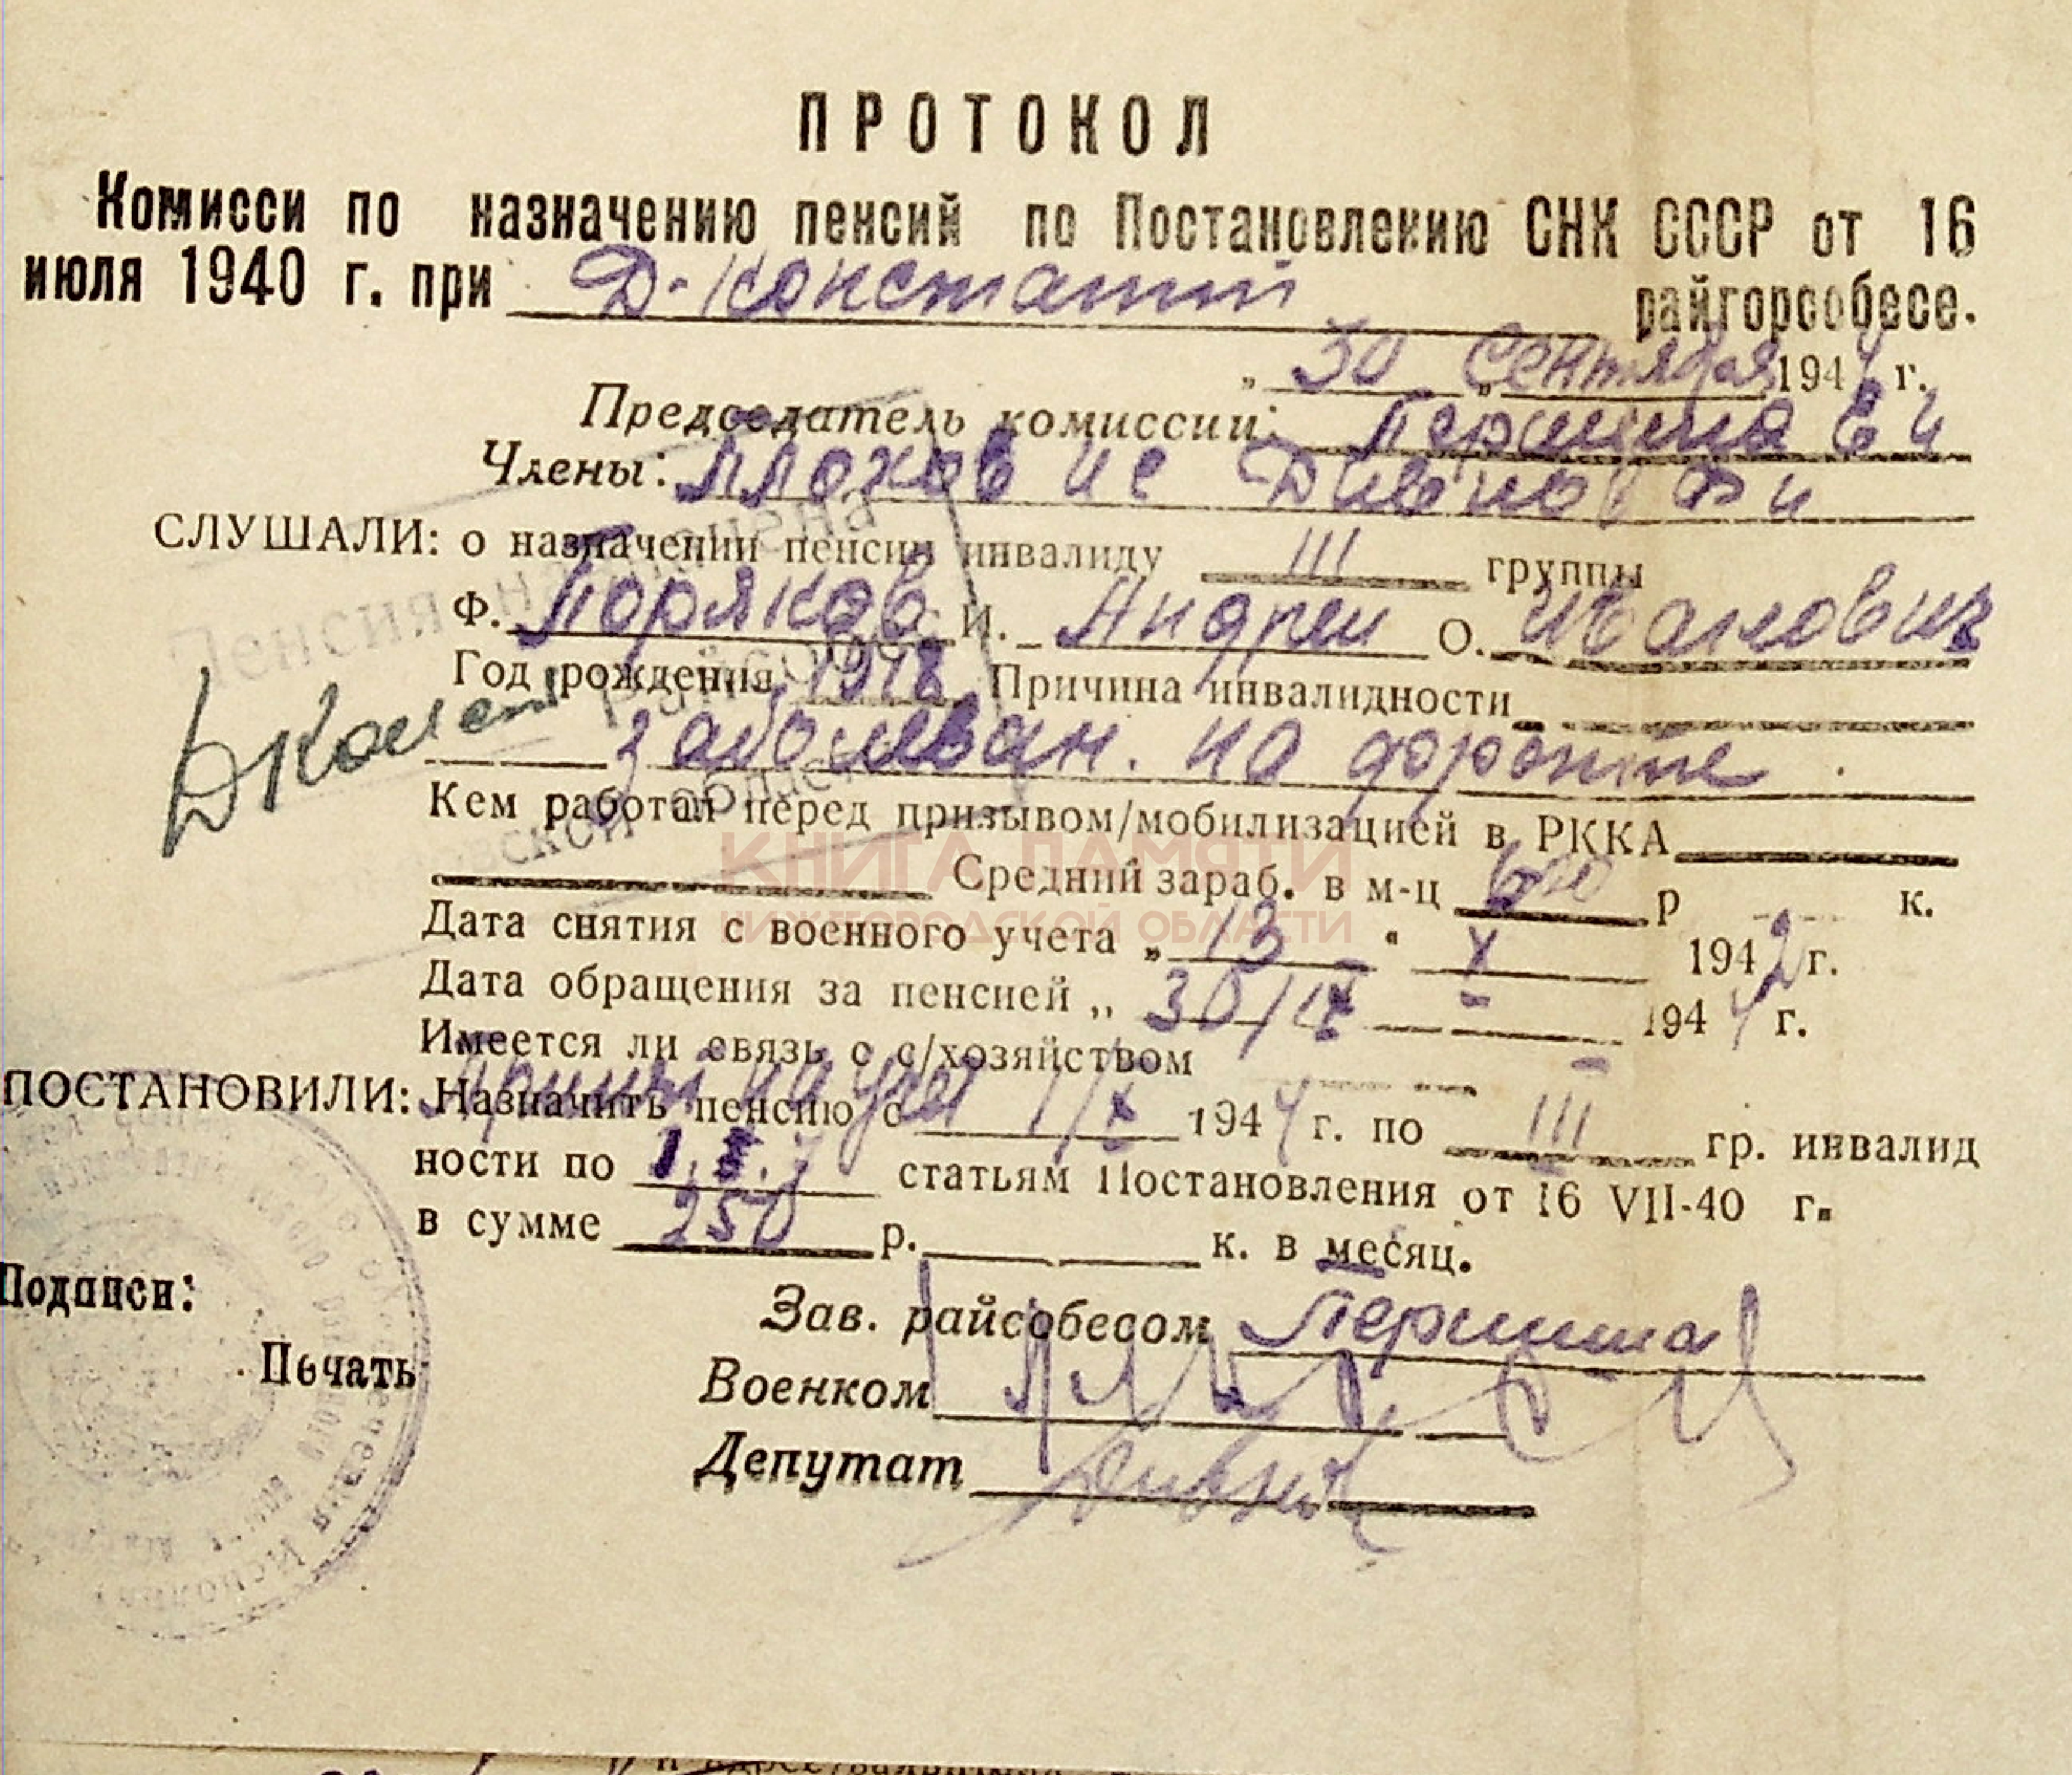 ПРОТОКОЛ
Комисси по назначению пенсий по Постановлению СНК СССР от 16
июля 1940 г. при Д-Констант райгорсобесе.
„ 30 „ Сентября 1944 г.
Председатель комиссии: Першина Е И
Члены: Плохов И С Дивнов Ф И
СЛУШАЛИ: о назначении пенсии инвалиду III группы
Ф. Поряков И. Андреи О. Иванович
Год рождения 1918 Причина инвалидности
заболеван. на фронте
Кем работал перед призывом/мобилизацией в РККА
Средний зараб. в м-ц р к.
Дата снятия с военного учета „ 13 " X 1942 г.
Дата обращения за пенсией „ 30/IX 1944 г.
Имеется ли связь с с/хозяйством
ПОСТАНОВИЛИ: Назначить пенсию с 1/X 1944 г. по III гр. инвалид
ности по статьям Постановления от 16 VII-40 г.
в сумме 250 р. к. в месяц.
Подписи:
Зав. райсобесом Першина
Печать
Военком
Депутат Дивнов
Пенсия назначена
Райсобес
ДКонст
КНИГА ПАМЯТИ
НИЖЕГОРОДСКОЙ ОБЛАСТИ